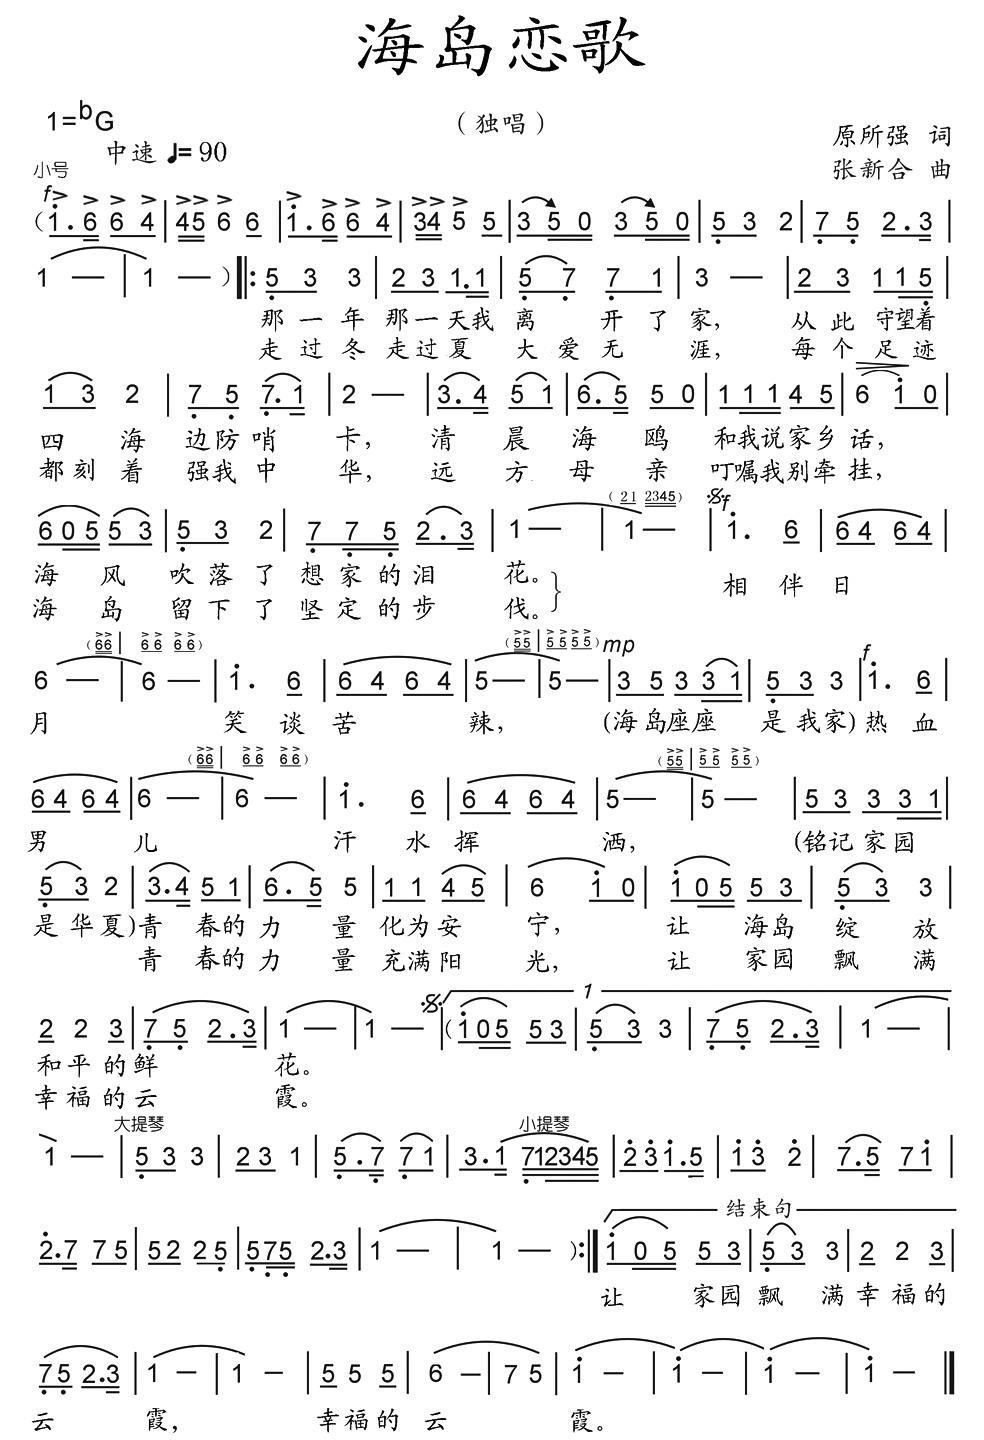 海岛恋歌
1=bG
（独唱）
原所强 词
中速 ♩=90
张新合 曲
小号
f
(1.6 6 4 | 45 6 6 | 1.6 6 4 | 34 5 5 | 3 5 0 3 5 0 | 5 3 2 | 7 5 2.3 |
1 — | 1 — ) ‖: 5 3 3 | 2 3 1.1 | 5 7 7 1 | 3 — | 2 3 1 1 5 |
那一年 那一天我 离 开了家， 从此 守望着
走过冬 走过夏 大爱无 涯， 每个 足迹
1 3 2 | 7 5 7.1 | 2 — | 3.4 5 1 | 6.5 5 0 | 1 1 1 4 5 | 6 1 0 |
四 海 边防哨 卡， 清 晨 海 鸥 和我说家乡 话，
都刻 着 强我中 华， 远 方 母 亲 叮嘱我别牵 挂，
(21 2345) 𝄋 f
6 0 5 5 3 | 5 3 2 | 7 7 5 2.3 | 1 — | 1 — | 1. 6 | 64 64 |
海 风 吹落了 想家的泪 花。} 相 伴 日
海 岛 留下了 坚定的步 伐。
(66 | 66 66) (55 | 55 55) mp f
6 — | 6 — | 1. 6 | 6 4 6 4 | 5 — | 5 — | 3 5 3 3 1 | 5 3 3 | 1. 6 |
月 笑 谈 苦 辣， (海岛座座 是我家) 热 血
(66 | 66 66) (55 | 55 55)
64 64 | 6 — | 6 — | 1. 6 | 6 4 6 4 | 5 — | 5 — | 5 3 3 3 1 |
男 儿 汗 水 挥 洒， (铭记家园
5 3 2 | 3.4 5 1 | 6. 5 5 | 1 1 4 5 | 6 1 0 | 1 0 5 5 3 | 5 3 3 |
是华夏)青 春的 力 量 化为安 宁， 让 海岛 绽 放
青 春的 力 量 充满阳 光， 让 家园 飘 满
𝄋 1
2 2 3 | 7 5 2.3 | 1 — | 1 — | (1 0 5 5 3 | 5 3 3 | 7 5 2.3 | 1 — |
和平的鲜 花。
幸福的云 霞。
大提琴 小提琴
1 — | 5 3 3 | 2 3 1 | 5.7 7 1 | 3.1 712345 | 2 3 1.5 | 1 3 2 | 7.5 7 1 |
结束句
2.7 7 5 | 5 2 2 5 | 5 7 5 2.3 | 1 — | 1 — ) :‖ 1 0 5 5 3 | 5 3 3 | 2 2 3 |
让 家园飘 满幸福的
7 5 2.3 | 1 — | 1 — | 5 5 5 | 6 — | 7 5 | 1 — | 1 — | 1 — | 1 — ‖
云 霞， 幸福的 云 霞。